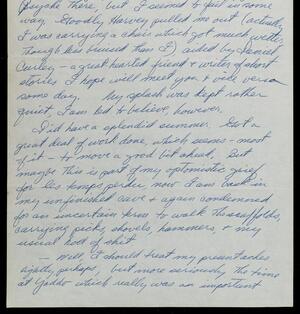 there, but I seemed to get in some
way. Goodly Harvey pulled me out (actually
I was carrying a chair which got much wetter,
though less bruised than I) aided by Daniel
Curley - a great hearted friend & writer of short
stories I hope will meet you & vice versa
some day. My splash was kept rather
quiet, I am led to believe, however.
I did have a splendid summer. Got a
great deal of work done, which seems - most
of it - to move a good bit ahead. But
maybe this is part of my optimistic grief
for les temps perdu, now I am back in
my unfinished cave & again condemned
for an uncertain term to walk the scaffolds,
carrying picks, shovels, hammers, & my
usual hod of shit
- Well, I should treat my present aches
lightly, perhaps, but more seriously the time
at Yaddo which really was an important